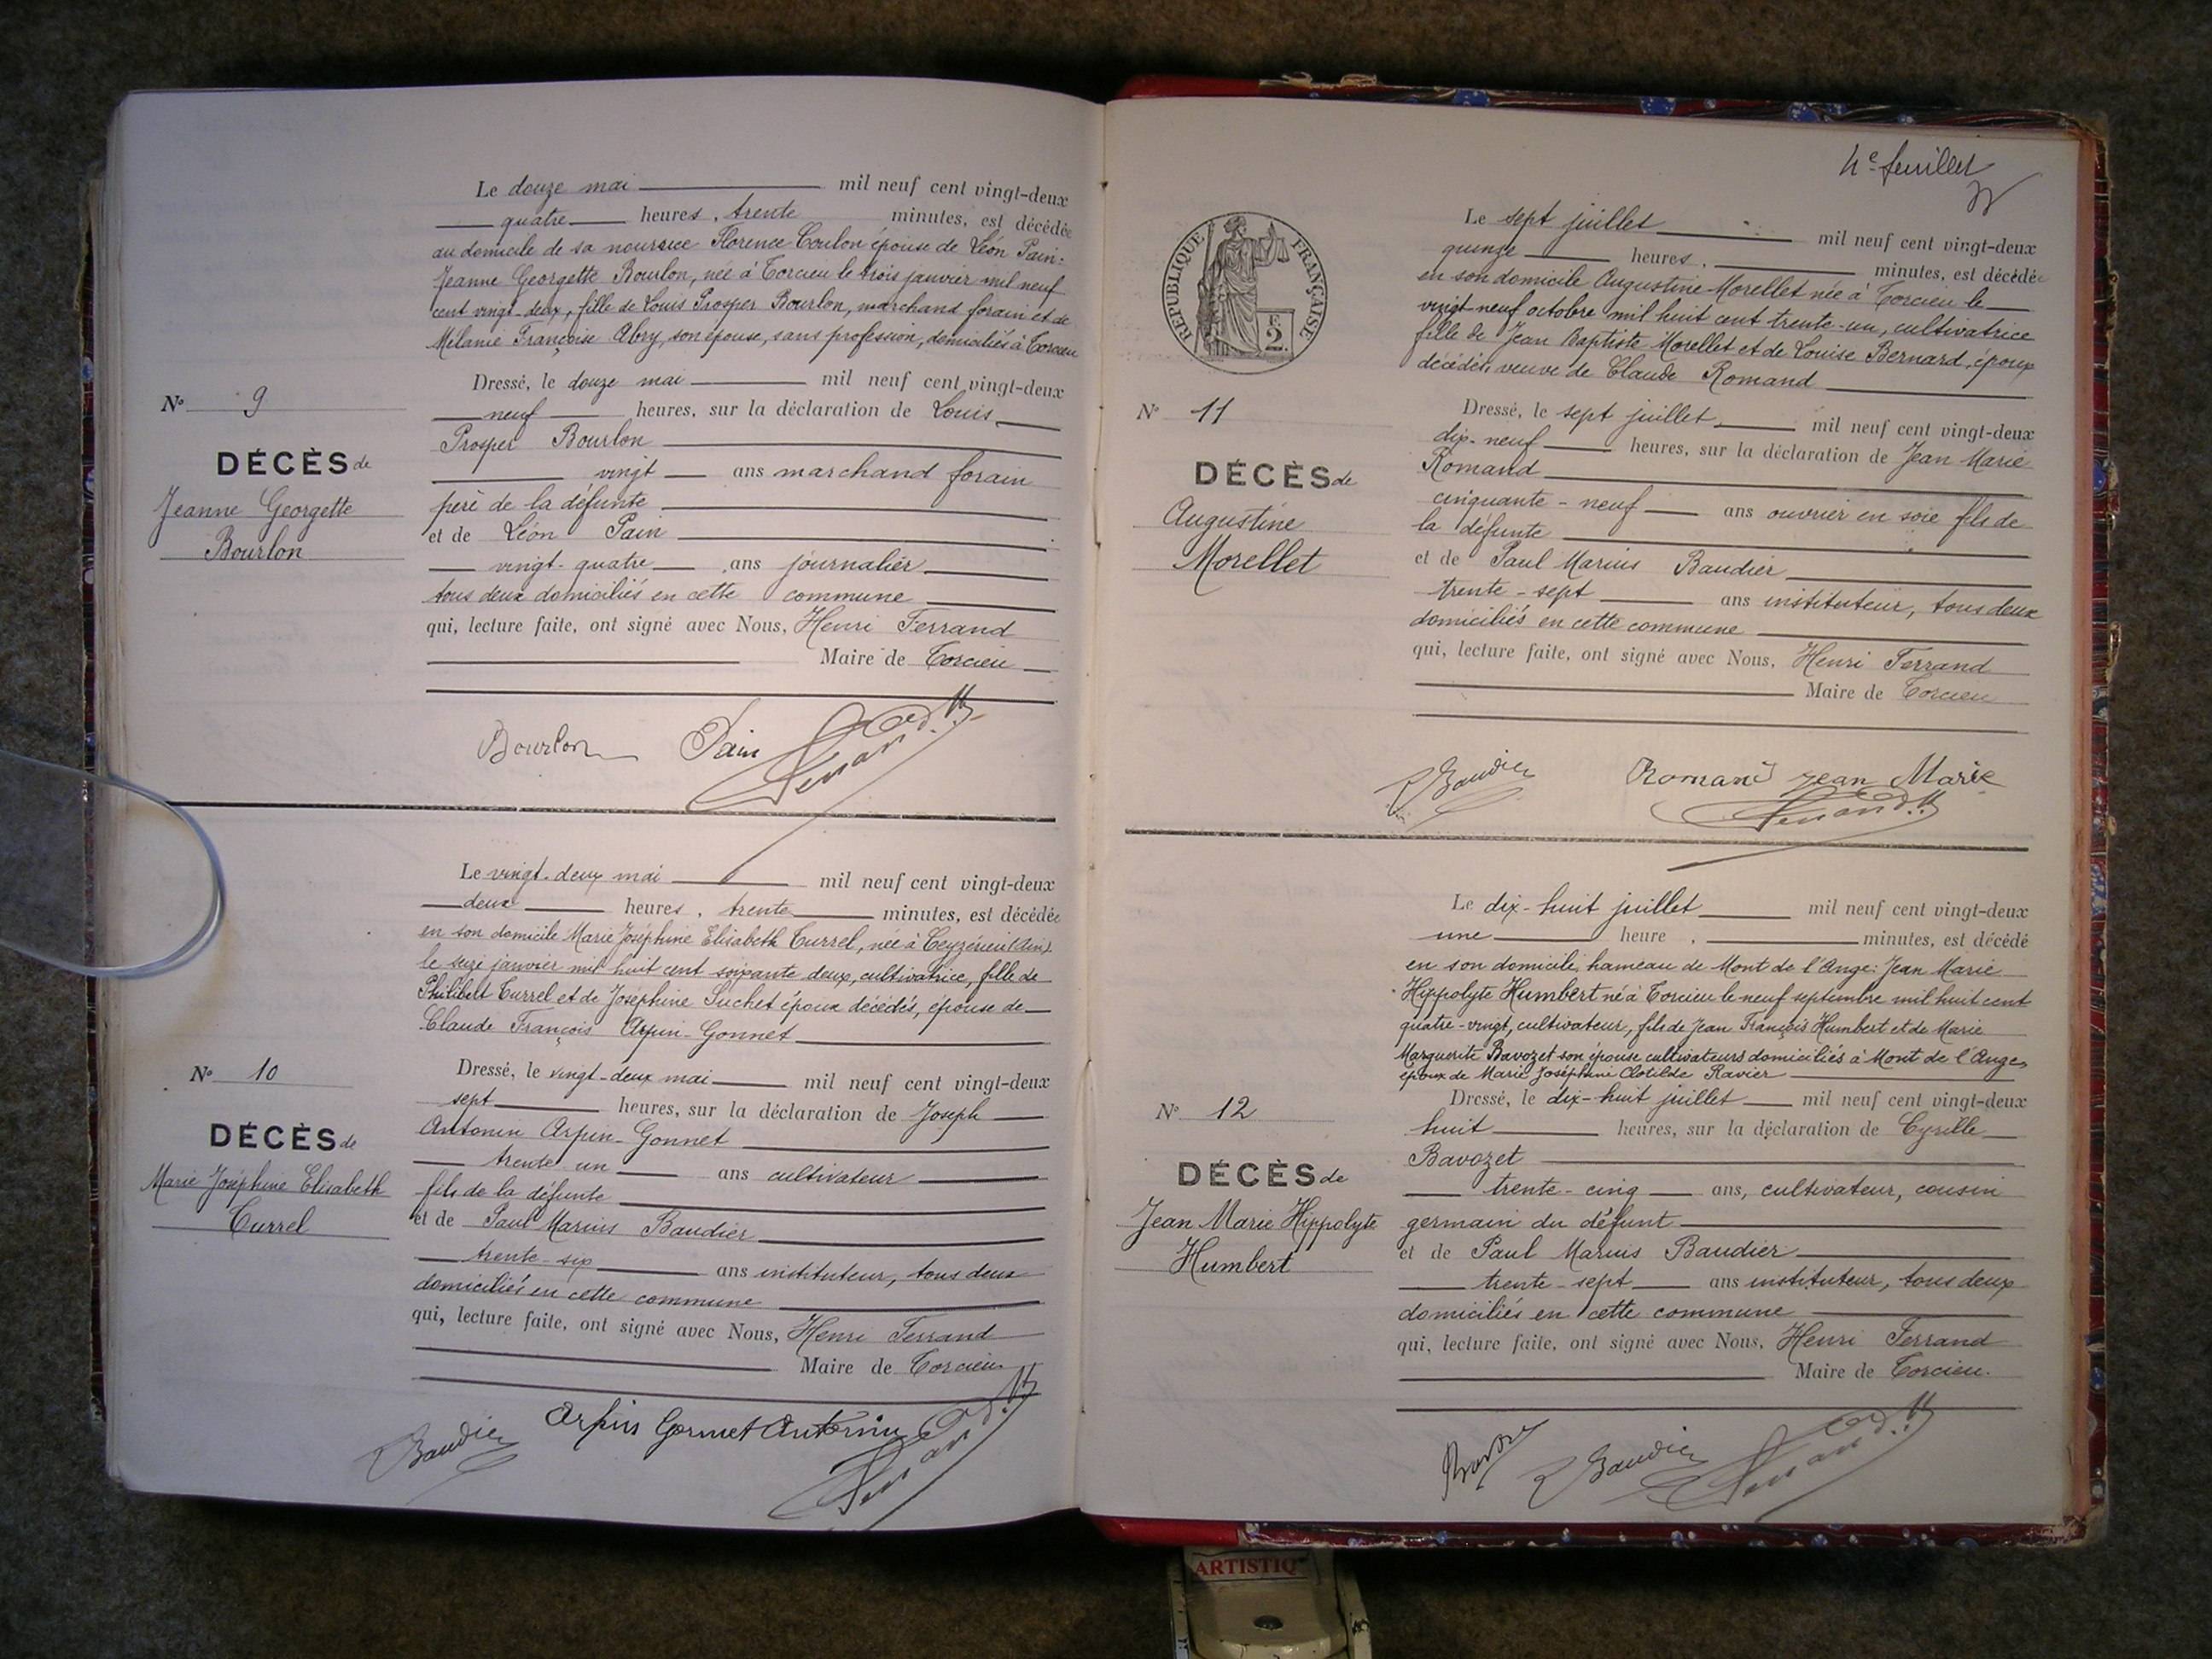 Le douze mai mil neuf cent vingt-deux
quatre heures, trente minutes, est décédée
au domicile de sa nourrice Florence Coulon épouse de Léon Pain:
Jeanne Georgette Bourlon, née à Torcieu le trois janvier mil neuf
cent vingt-deux, fille de Louis Prosper Bourlon, marchand forain et de
Mélanie Françoise Abry, son épouse, sans profession, domiciliés à Torcieu
Dressé, le douze mai mil neuf cent vingt-deux
neuf heures, sur la déclaration de Louis
Prosper Bourlon
vingt ans marchand forain
père de la défunte
et de Léon Pain
vingt-quatre ans journalier
tous deux domiciliés en cette commune
qui, lecture faite, ont signé avec Nous, Henri Ferrand
Maire de Torcieu
N° 9
DÉCÈS de
Jeanne Georgette
Bourlon
Bourlon Pain Ferrand
Le vingt-deux mai mil neuf cent vingt-deux
deux heures, trente minutes, est décédée
en son domicile Marie Joséphine Elisabeth Turrel, née à Ceyzérieu (Ain)
le seize janvier mil huit cent soixante deux, cultivatrice, fille de
Philibert Turrel et de Joséphine Suchet époux décédés, épouse de
Claude François Arpin-Gonnet
Dressé, le vingt-deux mai mil neuf cent vingt-deux
sept heures, sur la déclaration de Joseph
Antonin Arpin-Gonnet
trente un ans cultivateur
fils de la défunte
et de Paul Marius Baudier
trente-six ans instituteur, tous deux
domiciliés en cette commune
qui, lecture faite, ont signé avec Nous, Henri Ferrand
Maire de Torcieu
N° 10
DÉCÈS de
Marie Joséphine Elisabeth
Turrel
Baudier Arpin Gonnet Antonin Ferrand
4e feuillet
RÉPUBLIQUE FRANÇAISE
2
Le sept juillet mil neuf cent vingt-deux
quinze heures, minutes, est décédée
en son domicile Augustine Morellet née à Torcieu le
vingt-neuf octobre mil huit cent trente-un, cultivatrice
fille de Jean Baptiste Morellet et de Louise Bernard, époux
décédés, veuve de Claude Romand
Dressé, le sept juillet mil neuf cent vingt-deux
dix-neuf heures, sur la déclaration de Jean Marie
Romand
cinquante-neuf ans ouvrier en soie fils de
la défunte
et de Paul Marius Baudier
trente-sept ans instituteur, tous deux
domiciliés en cette commune
qui, lecture faite, ont signé avec Nous, Henri Ferrand
Maire de Torcieu
N° 11
DÉCÈS de
Augustine
Morellet
Baudier Romand Jean Marie
Ferrand
Le dix-huit juillet mil neuf cent vingt-deux
une heure, minutes, est décédé
en son domicile, hameau de Mont de l'Ange: Jean Marie
Hippolyte Humbert né à Torcieu le neuf septembre mil huit cent
quatre-vingt, cultivateur, fils de Jean François Humbert et de Marie
Marguerite Bavozet son épouse cultivateurs domiciliés à Mont de l'Ange,
époux de Marie Joséphine Clotilde Ravier
Dressé, le dix-huit juillet mil neuf cent vingt-deux
huit heures, sur la déclaration de Cyrille
Bavozet
trente-cinq ans, cultivateur, cousin
germain du défunt
et de Paul Marius Baudier
trente-sept ans instituteur, tous deux
domiciliés en cette commune
qui, lecture faite, ont signé avec Nous, Henri Ferrand
Maire de Torcieu.
N° 12
DÉCÈS de
Jean Marie Hippolyte
Humbert
Baudier Ferrand
ARTISTIQ